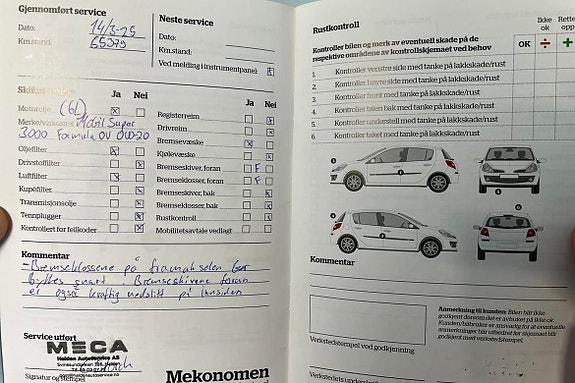 Gjennomført service
Dato: 14/3-25
Km.stand: 65079
Neste service
Dato:
Km.stand:
Ved melding i instrumentpanel:
Ja Nei
Motorolje (6L)
Merke/viskositet Mobil Super
3000 Formula OV 0W-20
Oljefilter
Drivstoffilter
Luftfilter
Kupéfilter
Transmisjonsolje
Tennplugger
Kontrollert for feilkoder
Ja Nei
Registerreim
Drivreim
Bremsevæske
Kjølevæske
Bremseskiver, foran F
Bremseklosser, foran F
Bremseskiver, bak
Bremseklosser, bak
Rustkontroll
Mobilitetsavtale vedlagt
Kommentar
- Bremseklossene på framakselen bør
byttes snart. Bremseskivene foran
er også kraftig nedslitt på innsiden
Service utført
MECA
Halden Autoservice AS
Signatur og stempel
Mekonomen
Rustkontroll
Kontroller bilen og merk av eventuell skade på de
respektive områdene av kontrollskjemaet ved behov
OK
Ikke
ok
÷
Rette
opp
+
1. Kontroller venstre side med tanke på lakkskade/rust
2. Kontroller høyre side med tanke på lakkskade/rust
3. Kontroller front med tanke på lakkskade/rust
4. Kontroller bilen bak med tanke på lakkskade/rust
5. Kontroller understell med tanke på lakkskade/rust
6. Kontroller taket med tanke på lakkskade/rust
Kommentar
Anmerkning til kunden: Bilen blir ikke
godkjent dersom det er avhuket på ikke ok.
Kunden/bilbruker er ansvarlig for at eventuelle
anmerkninger blir utbedret før skjemaet blir
godkjent med verkstedstempel.
Verkstedstempel ved godkjenning